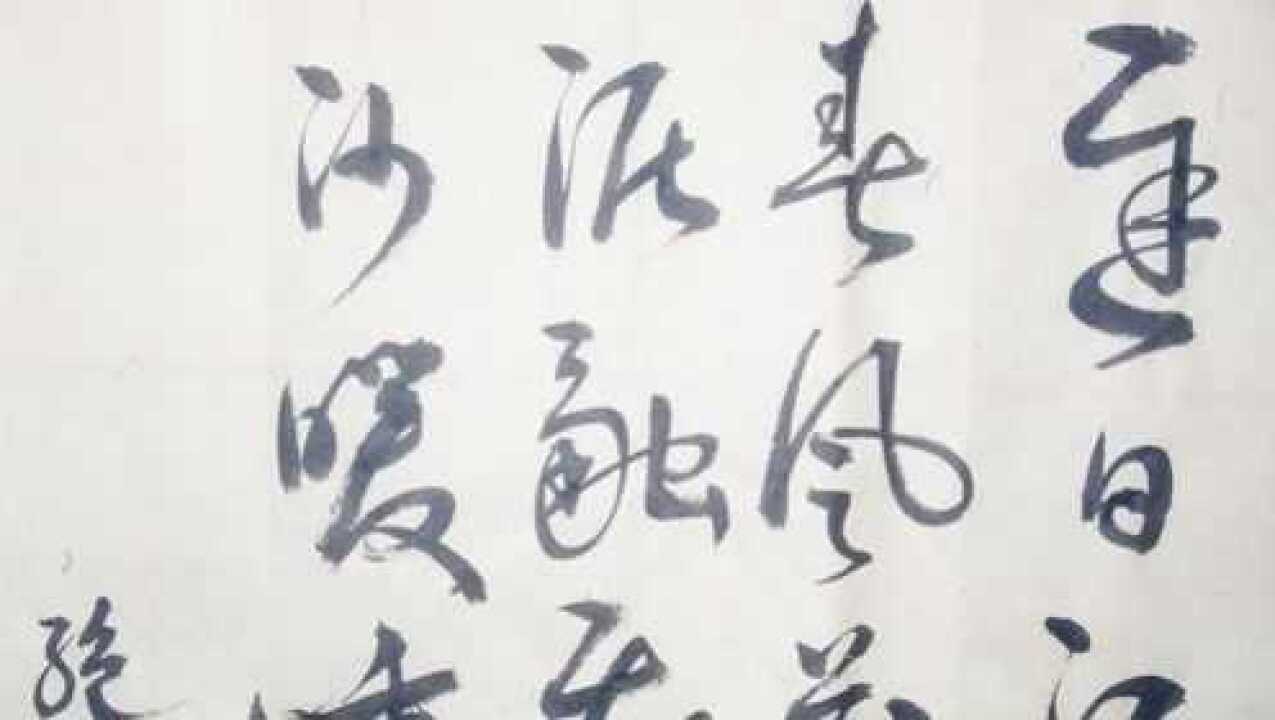 遲日江
春風花
泥融飛
沙暖睡
絕